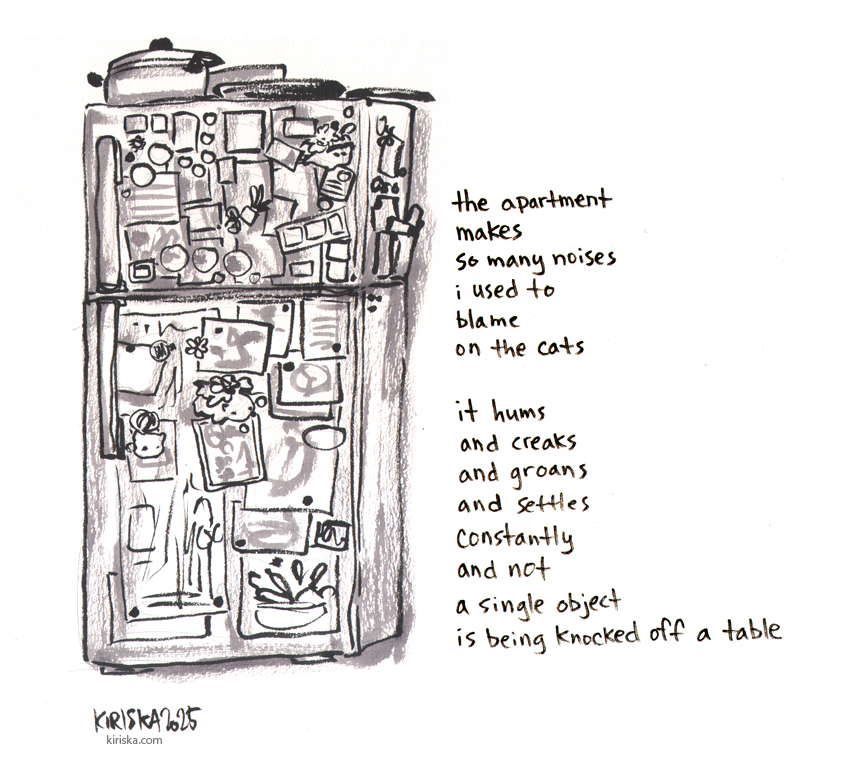 the apartment
makes
so many noises
i used to
blame
on the cats
it hums
and creaks
and groans
and settles
constantly
and not
a single object
is being knocked off a table
KIRISKA2025
kiriska.com